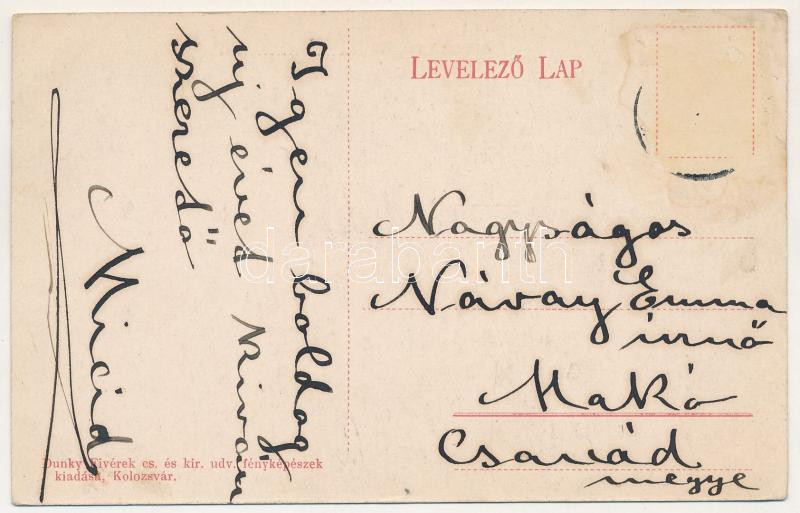 LEVELEZŐ LAP
Igen boldog
új évet kíván
szerető
Micid
Nagyságos
Návay Emma
úrnő
Makó
Csanád
megye
Dunky Fivérek cs. és kir. udv. fényképészek
kiadása, Kolozsvár.
darabanth